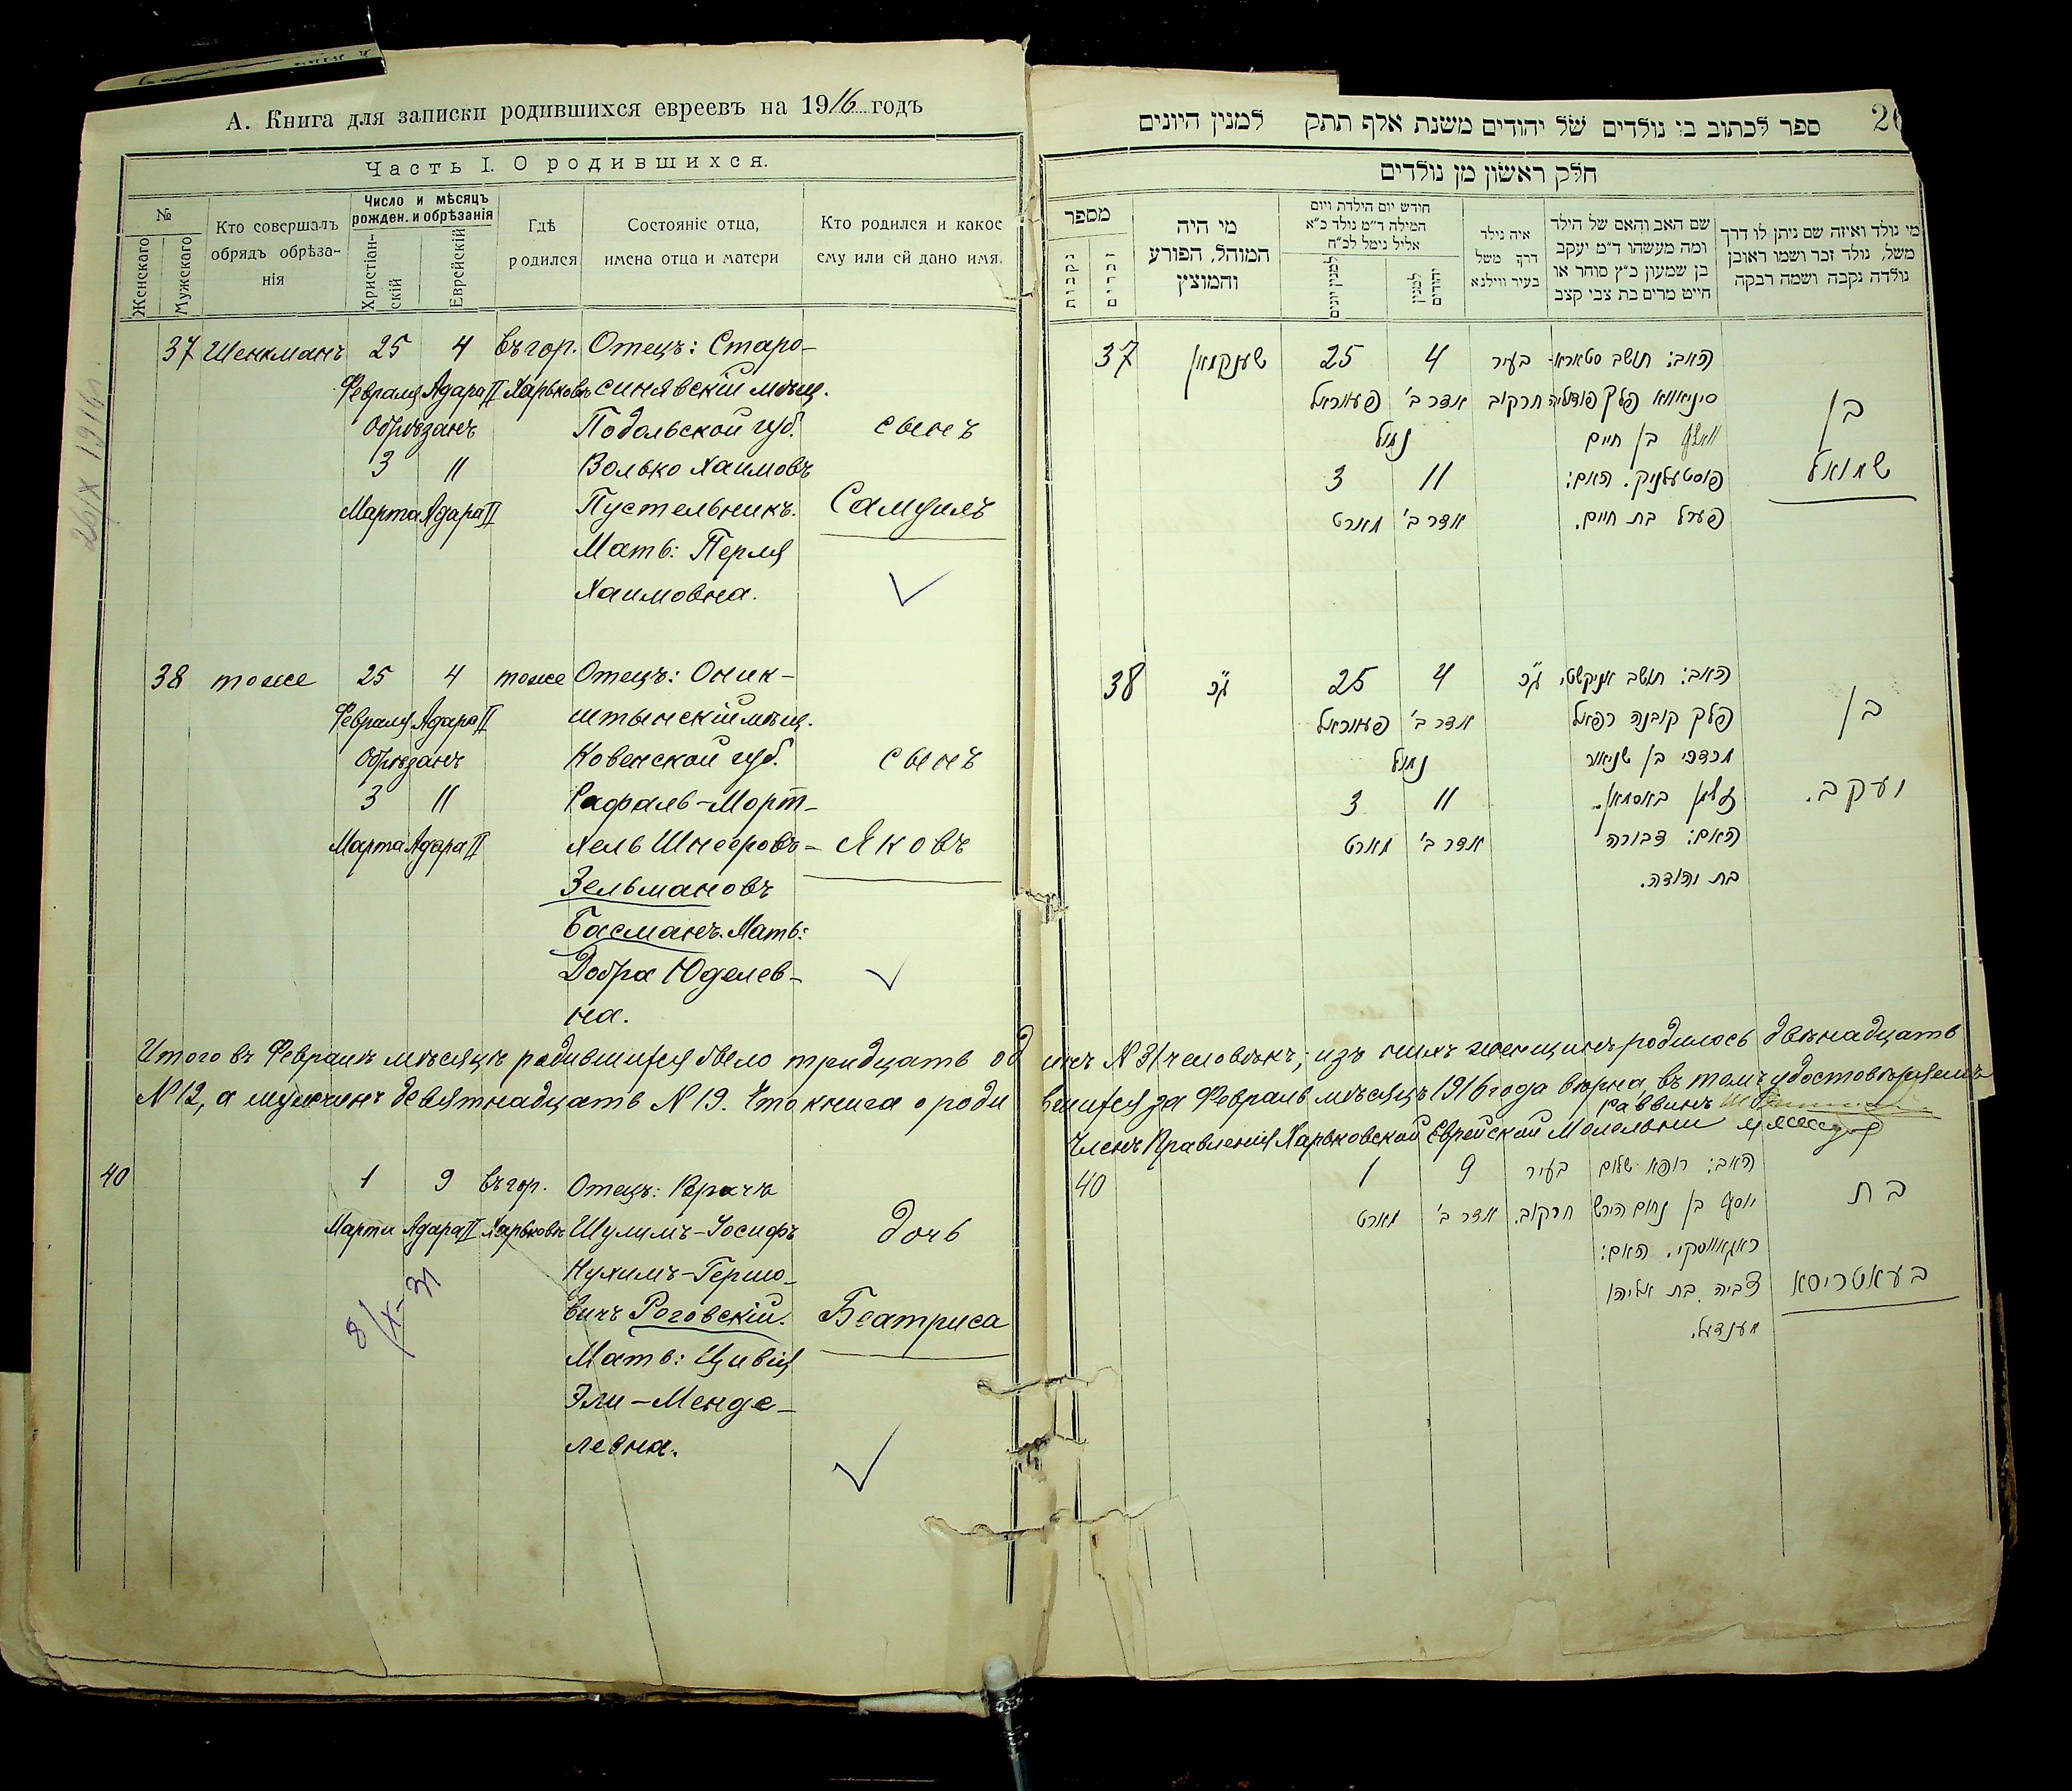 А. Книга для записки родившихся евреевъ на 1916 годъ
Часть I. О родившихся.
№
Женскаго
Мужскаго
Кто совершалъ
обрядъ обрѣза-
нія
Число и мѣсяцъ
рожден. и обрѣзанія
Христіан-
скій
Еврейскій
Гдѣ
родился
Состояніе отца,
имена отца и матери
Кто родился и какое
ему или ей дано имя.
37 Шенкманъ 25 4 въ гор. Отецъ: Старо-
Февраля Адара II Харьковѣ синявскій мѣщ.
Обрѣзанъ Подольской губ. сынъ
3 11 Волько Хаимовъ
Марта Адара II Пустельникъ. Самуилъ
Мать: Перля
Хаимовна.
38 тоже 25 4 тоже Отецъ: Оник-
штынскій мѣщ.
Февраля Адара II
Обрѣзанъ Ковенской губ. сынъ
3 11 Рафаль-Морт-
Марта Адара II хель Шнееровъ- Яковъ
Зельмановъ
Басманъ. Мать:
Добра Юделев-
на.
Итого въ Февралѣ мѣсяцѣ родившихся было тридцать одинъ N 31 человѣкъ; изъ нихъ женщинъ родилось двѣнадцать
N 12, а мужчинъ девятнадцать N 19. Что книга о родившихся за Февраль мѣсяцъ 1916 года вѣрна, въ томъ удостовѣряемъ
Раввинъ
Членъ Правленія Харьковской Еврейской Молельни
40 1 9 въ гор. Отецъ: Врачъ
Марта Адара II Харьковѣ Шулимъ-Іосифъ дочь
Нухимъ-Гершо-
вичъ Роговскій. Беатриса
Мать: Цивія
Эли-Менде-
левна.
8/X-31
26/X 1916 г.
26
ספר לכתוב בו נולדים של יהודים משנת אלף תתק למנין היונים
חלק ראשון מן נולדים
מספר
נקבות
זכרים
מי היה
המוהל, הפורע
והמוצץ
חודש יום הולדת ויום
המילה ד״מ נולד כ״א
אליל נימל לכ״ח
למנין יונים
למנין
יהודים
איה נולד
דרך משל
בעיר ווילנא
שם האב והאם של הילד
ומה מעשהו ד״מ יעקב
בן שמעון כ״ץ סוחר או
חייט מרים בת צבי קצב
מי נולד ואיזה שם ניתן לו דרך
משל, נולד זכר ושמו ראובן
נולדה נקבה ושמה רבקה
37 שענקמאן 25 4 בעיר האב: תושב סטארא-
פעווראל אדר ב' חרקוב סיניאווא פלך פודוליה בן
נמול וואלף בן חיים
3 11 פוסטעלניק. האם: שמואל
מארט אדר ב' פערל בת חיים.
38 ג״כ 25 4 ג״כ האב: תושב אניקשטי
פעווראל אדר ב' פלך קובנה רפאל בן
נמול מרדכי בן שניאור
3 11 זלמן באסמאן. יעקב.
מארט אדר ב' האם: דבורה
בת יהודה.
40 1 9 בעיר האב: רופא שלום
מארט אדר ב' חרקוב. יוסף בן נחום הירש בת
ראגאווסקי. האם:
צביה בת אליהו בעאטריסא
מענדעל.